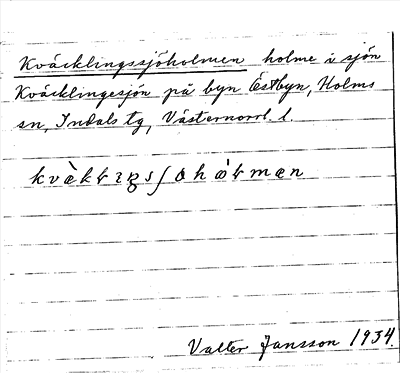 Kväcklingssjöholmen holme i sjön
Kväcklingesjön på byn Östbyn, Holms
sn, Indals tg, Västernorrl. l.
kvæ̀kɫɪŋsʃøhɷ́ɫmæn
Valter Jansson 1934.